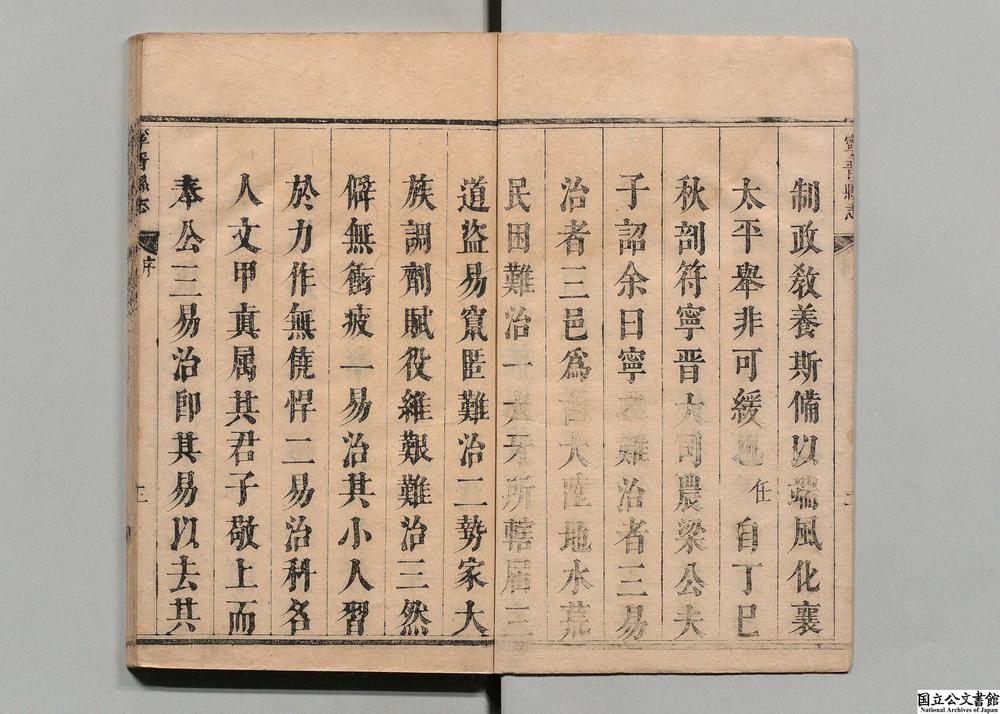 寧晋縣志
制政敎養斯備以端風化襄
太平舉非可緩也任自丁巳
秋剖符寧晋大司農梁公夫
子詔余曰寧之難治者三易
治者三邑爲大陸地水荒
民困難治一犬牙所轄届三
道盜易竄匿難治二勢家大
族調劑賦役維艱難治三然
僻無衝疲一易治其小人習
於力作無僥悍二易治科名
人文甲眞属其君子敬上而
奉公三易治卽其易以去其
寧晋縣志
序
三
国立公文書館
National Archives of Japan